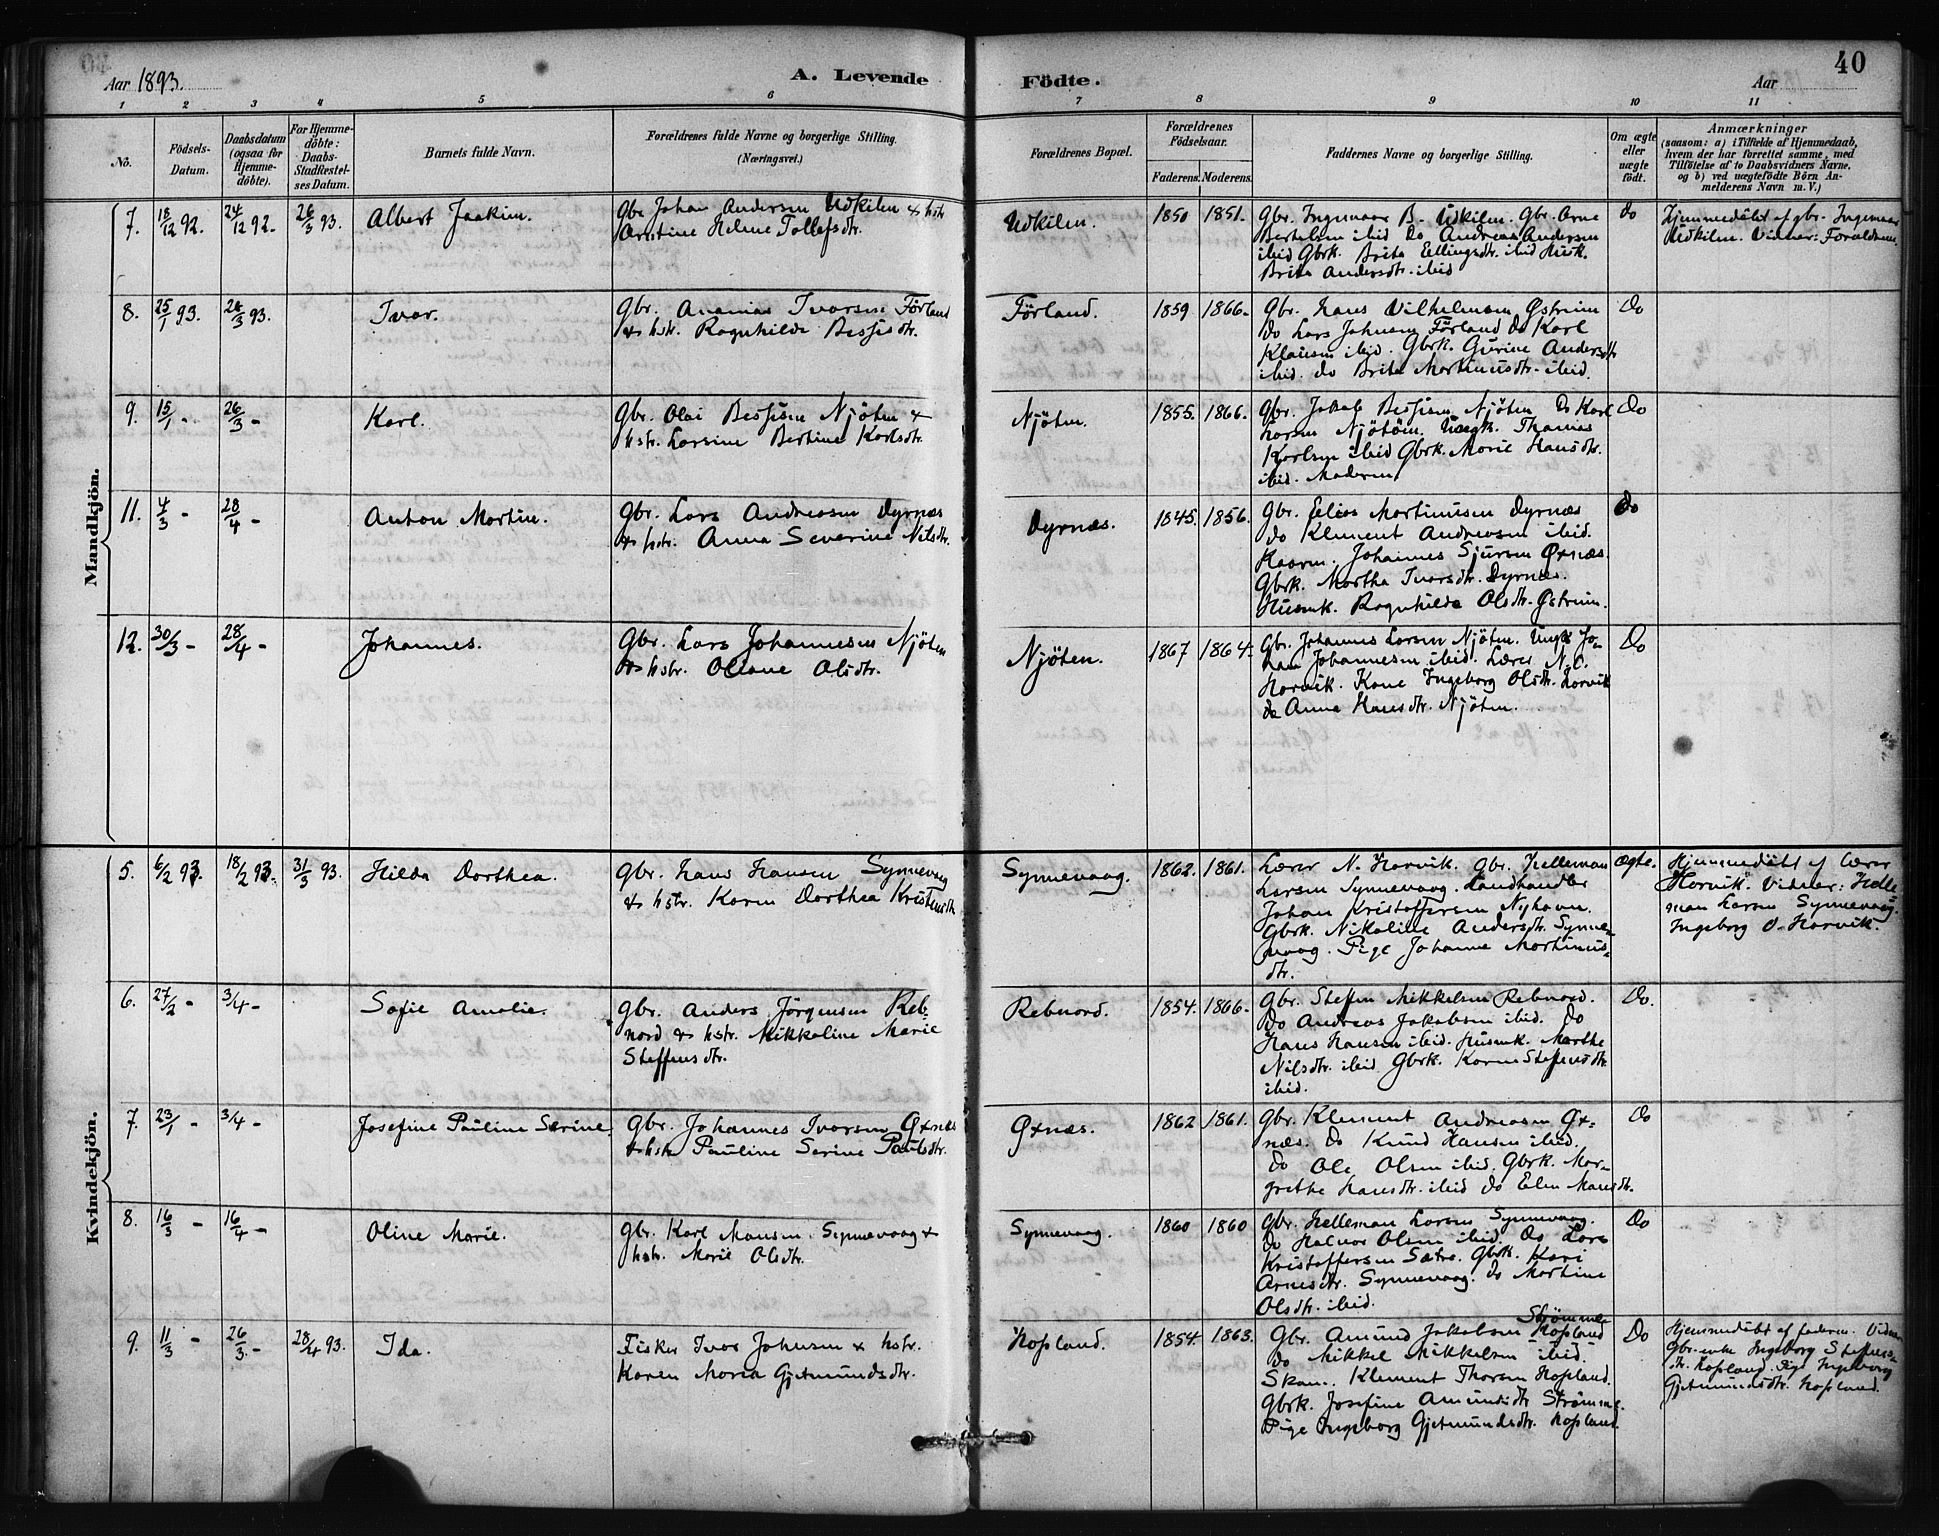 40
Aar 1893.
A. Levende
Födte.
Aar
1 2 3 4 5 6 7 8 9 10 11
No.
Födsels-
Datum.
Daabsdatum
(ogsaa for
Hjemme-
döbte).
For Hjemme-
döbte:
Daabs-
Stadfæstel-
ses Datum.
Barnets fulde Navn.
Forældrenes fulde Navne og borgerlige Stilling.
(Næringsvei.)
Forældrenes Bopæl.
Forældrenes
Födselsaar.
Faderens. Moderens.
Faddernes Navne og borgerlige Stilling.
Om ægte
eller
uægte
födt.
Anmærkninger
(saasom: a) i Tilfælde af Hjemmedaab,
hvem der har forrettet samme, med
Tilföielse af to Daabsvidners Navne,
og b) ved uægtefödte Börn An-
melderens Navn m. V.)
Mandkjön.
7. 18/12 92. 24/12 92. 26/3 93. Albert Joakim.
Gbr. Johan Andersen Udkilen & hstr
Helene Tollefsdtr.
Udkilen.
1850 1851.
Gbr. Ingemaar B. Udkilen. Gbr. Arne
Bertelsen ibid Do Andreas Andersen
ibid Gbrk. Brita Ellingsdtr. ibid Husk.
Brita Andersdtr. ibid
do
Hjemmedöbt af gbr. Ingemaar
Udkilen. Vidner: Forældrene.
8. 25/1 93. 26/3 93. Ivar.
Gbr. Ananias Ivarsen Förland
& hstr. Ragnhilde Bessisdtr.
Förland.
1859 1866.
Gbr. Hans Vilhelmsen Østreim
do Lars Johnsen Förland do Karl
Klausen ibid. Gbrk. Gurine Andersdtr
ibid. do Brita Martinusdtr. ibid.
Do
9. 15/1 - 26/3 - Karl.
Gbr. Olai Bessisen Njöten &
hstr. Larsine Bertine Karlsdtr.
Njöten.
1855. 1866.
Gbr. Jakob Bessisen Njöten Do Karl
Larsen Njöten. Ungk. Thomas
Karlsen ibid Gbrk. Marie Hansdtr.
ibid. Moderen
Do
11. 4/3 - 28/4 - Anton Martin.
Gbr. Lars Andreasen Dyrnæs
& hstr. Anna Severine Nilsdtr.
Dyrnæs.
1845. 1856.
Gbr. Elias Martinusen Dyrnæs
do Klement Andreasen ibid.
Johannes Sjursen Øxnæs.
Gbrk. Martha Ivarsdtr. Dyrnæs.
Husmk. Ragnhilda Olsdtr. Østreim.
Do
12. 30/3 - 28/4 - Johannes.
Gbr. Lars Johannesen Njöten
& hstr. Oliane Olsdtr.
Njöten.
1867 1864.
Gbr. Johannes Larsen Njöten. Ungk. Jo-
han Johannesen ibid. Lærer N. O.
Horvik. Kone Ingeborg Olsdtr. Horvik
do Anna Hansdtr. Njöten.
Do
Kvindekjön.
5. 6/2 93. 18/2 93. 31/3 93. Hilda Dorthea.
Gbr. Hans Hansen Synnevaag
& hstr. Karen Dorthea Kristensdtr
Synnevaag.
1862. 1861.
Lærer N. Horvik. Gbr. Helleman
Larsen Synnevaag. Landhandler
Johan Kristoffersen Nyhavn.
Gbrk. Nikoline Andersdtr. Synne-
vaag. Pige Johanne Martinus-
dtr.
ægte.
Hjemmedöbt af Lærer
Horvik. Vidner: Helle-
man Larsen Synnevaag.
Ingeborg O. Horvik.
6. 27/2 - 3/4 - Sofie Amalie.
Gbr. Anders Jörgensen Reb-
nord & hstr. Mikkaline Marie
Steffensdtr.
Rebnord.
1854. 1866.
Gbr. Steffen Mikkelsen Rebnord.
Do Andreas Jakobsen ibid. Do
Hans Hansen ibid. Husmk. Marthe
Nilsdtr. ibid Gbrk. Karen Steffensdtr
ibid.
Do.
7. 23/1 - 3/4 - Josefine Pauline Serine.
Gbr. Johannes Ivarsen Øxnæs
& hstr Pauline Serine Paulsdtr.
Øxnæs.
1862 1861.
Gbr. Klement Andreasen Øx-
næs. do Knud Hansen ibid.
do Ole Olsen ibid. Gbrk. Mar-
grethe Hansdtr. ibid do Elen Mansdtr.
Do
8. 16/3 - 16/4 - Oline Marie.
Gbr. Karl Monsen Synnevaag &
hstr. Marie Olsdtr.
Synnevaag.
1860 1860
Gbr. Helleman Larsen Synnevaag.
do Halvor Olsen ibid. Do Lars
Kristoffersen Sætre. Gbrk. Kari
Arnesdtr. Synnevaag. do Martine
Olsdtr. ibid.
Do
9. 11/3 - 26/3 - 28/4 93. Ida.
Fisker Ivar Johnsen & hstr.
Karen Maria Gjetmundsdtr.
Hopland.
1854. 1863.
Strömme
Gbr. Amund Jakobsen Hopland
do Mikkel Mikkelsen ibid.
Skom. Klement Thorsen Hopland.
Gbrk. Josefine Amundsdtr Strömme.
Pige Ingeborg Gjetmundsdtr. Hopland
Do
Hjemmedöbt af faderen. Vidner
Gbr.enke Ingeborg Steffens-
dtr. Hopland. Pige Ingeborg
Gjetmundsdtr. Hopland.